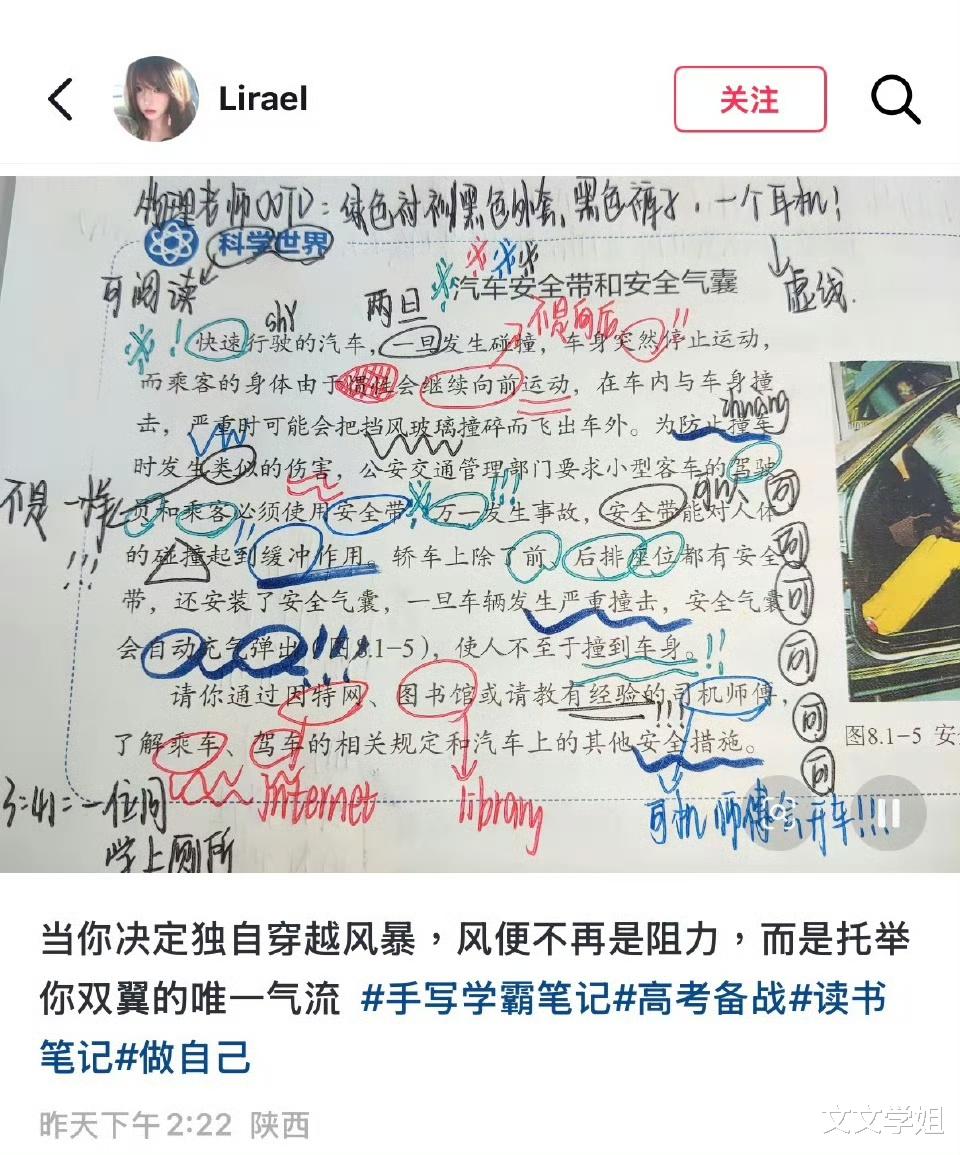 Lirael
关注
物理老师OOTD：绿色衬衫黑色外套、黑色裤子，一个耳机！
科学世界
可阅读
两日
汽车安全带和安全气囊
虚线.
shǐ
不是向后
快速行驶的汽车，一旦发生碰撞，车身突然停止运动，
而乘客的身体由于惯性会继续向前运动，在车内与车身撞
击，严重时可能会把挡风玻璃撞碎而飞出车外。为防止撞车
zhuàng
时发生类似的伤害，公安交通管理部门要求小型客车的驾驶
不是一样
!!!
员和乘客必须使用安全带。万一发生事故，安全带能对人体
的碰撞起到缓冲作用。轿车上除了前、后排座位都有安全
带，还安装了安全气囊，一旦车辆发生严重撞击，安全气囊
会自动充气弹出（图8.1-5），使人不至于撞到车身。
请你通过因特网、图书馆或请教有经验的司机师傅，
了解乘车、驾车的相关规定和汽车上的其他安全措施。
图8.1-5 安全
3:41:一位同
学上厕所
internet
library
司机师傅会开车!!!
当你决定独自穿越风暴，风便不再是阻力，而是托举
你双翼的唯一气流 #手写学霸笔记#高考备战#读书
笔记#做自己
昨天下午2:22 陕西
文文学姐